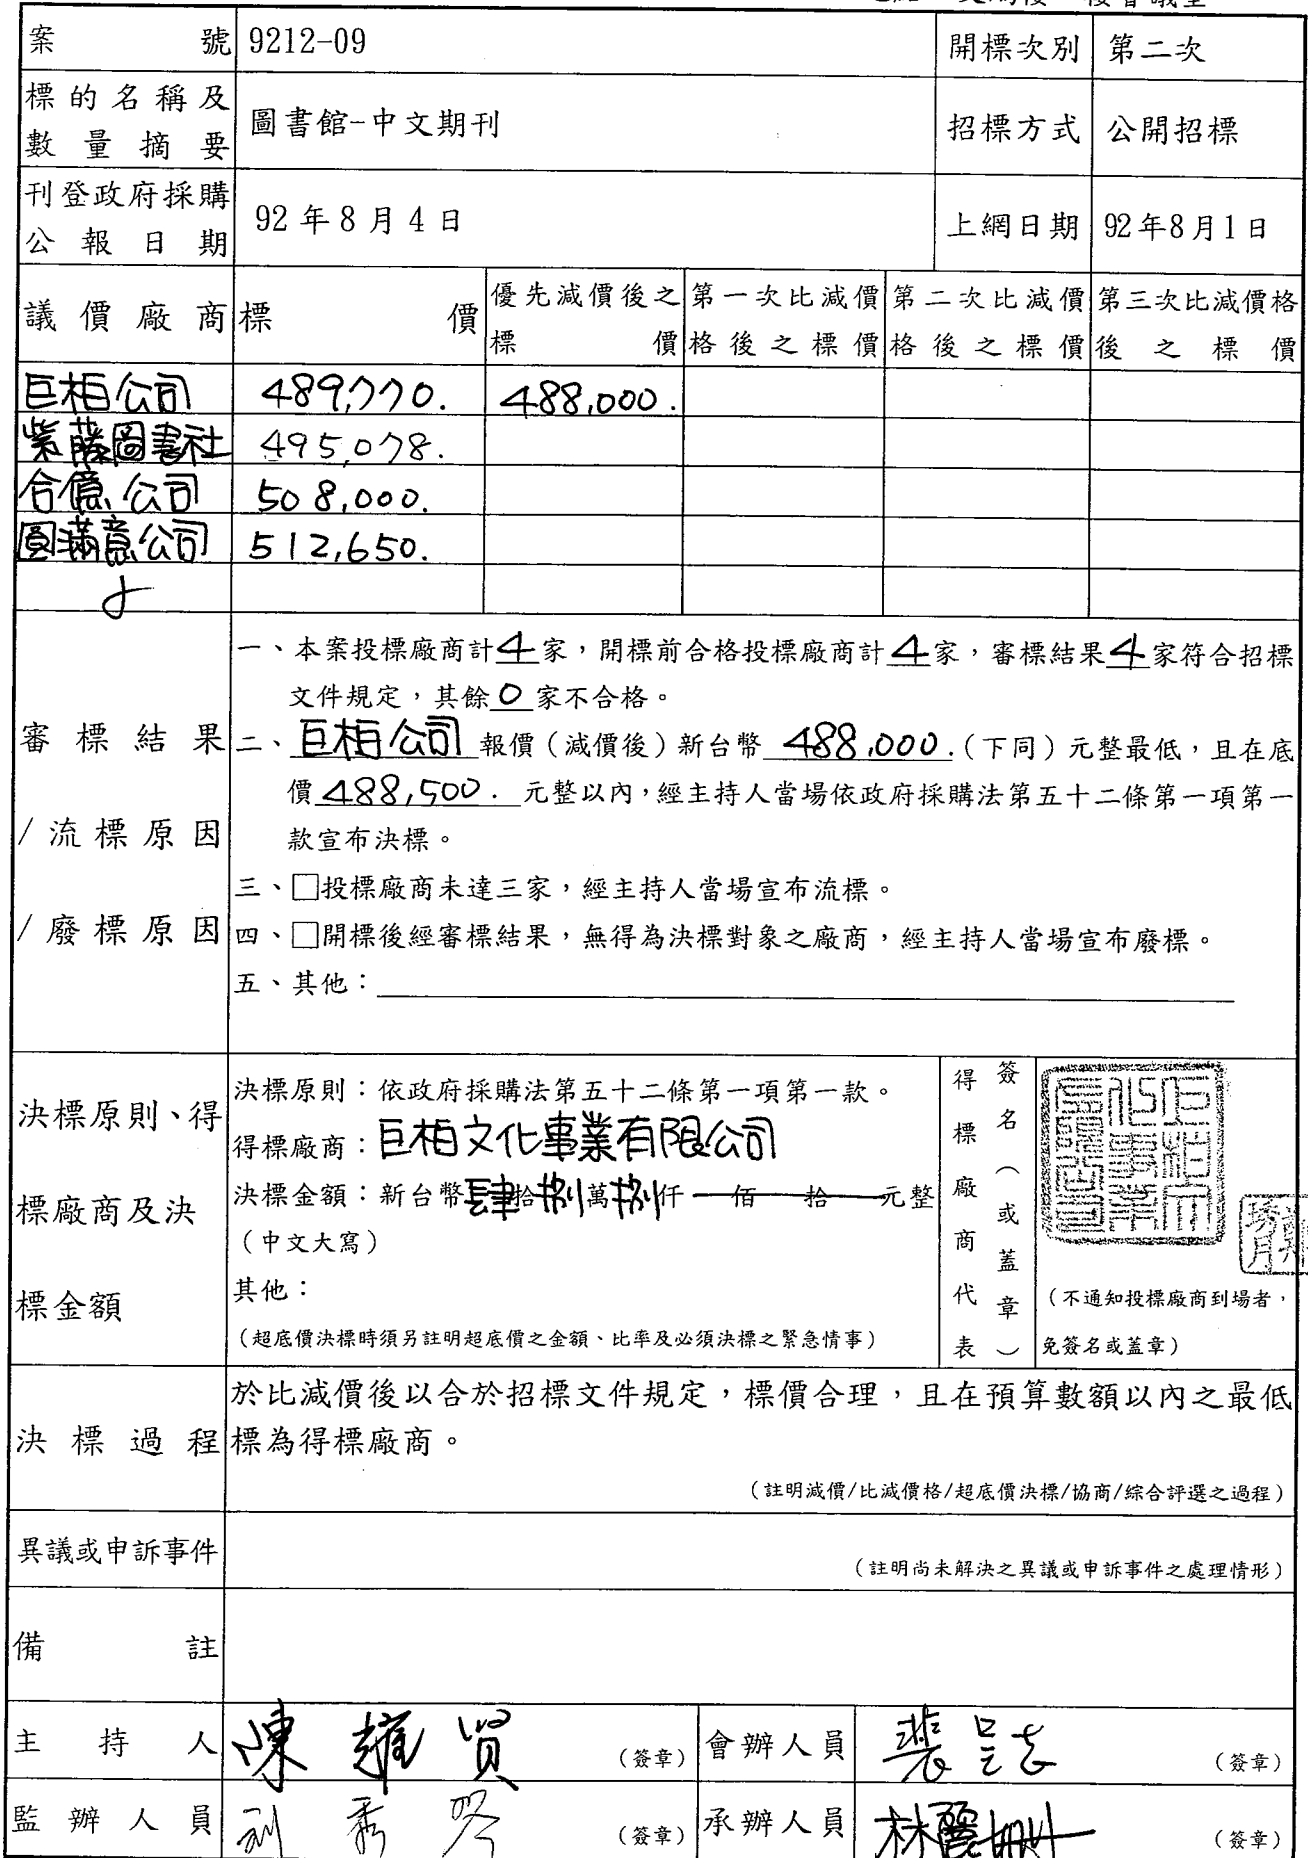 案號 9212-09 開標次別 第二次
標的名稱及數量摘要 圖書館-中文期刊 招標方式 公開招標
刊登政府採購公報日期 92年8月4日 上網日期 92年8月1日
議價廠商 標價 優先減價後之標價 第一次比減價格後之標價 第二次比減價格後之標價 第三次比減價格後之標價
巨柏公司 489,770. 488,000.
紫藤圖書社 495,078.
合億公司 508,000.
圓滿意公司 512,650.
審標結果/流標原因/廢標原因
一、本案投標廠商計4家，開標前合格投標廠商計4家，審標結果4家符合招標
文件規定，其餘0家不合格。
二、巨柏公司報價（減價後）新台幣488,000.（下同）元整最低，且在底
價488,500.元整以內，經主持人當場依政府採購法第五十二條第一項第一
款宣布決標。
三、□投標廠商未達三家，經主持人當場宣布流標。
四、□開標後經審標結果，無得為決標對象之廠商，經主持人當場宣布廢標。
五、其他：
決標原則、得標廠商及決標金額
決標原則：依政府採購法第五十二條第一項第一款。
得標廠商：巨柏文化事業有限公司
決標金額：新台幣肆拾捌萬捌仟 佰 拾 元整
（中文大寫）
其他：
（超底價決標時須另註明超底價之金額、比率及必須決標之緊急情事）
得標廠商代表簽名（或蓋章）
（不通知投標廠商到場者，
免簽名或蓋章）
決標過程
於比減價後以合於招標文件規定，標價合理，且在預算數額以內之最低
標為得標廠商。
（註明減價/比減價格/超底價決標/協商/綜合評選之過程）
異議或申訴事件 （註明尚未解決之異議或申訴事件之處理情形）
備註
主持人 （簽章） 會辦人員 （簽章）
監辦人員 （簽章） 承辦人員 （簽章）